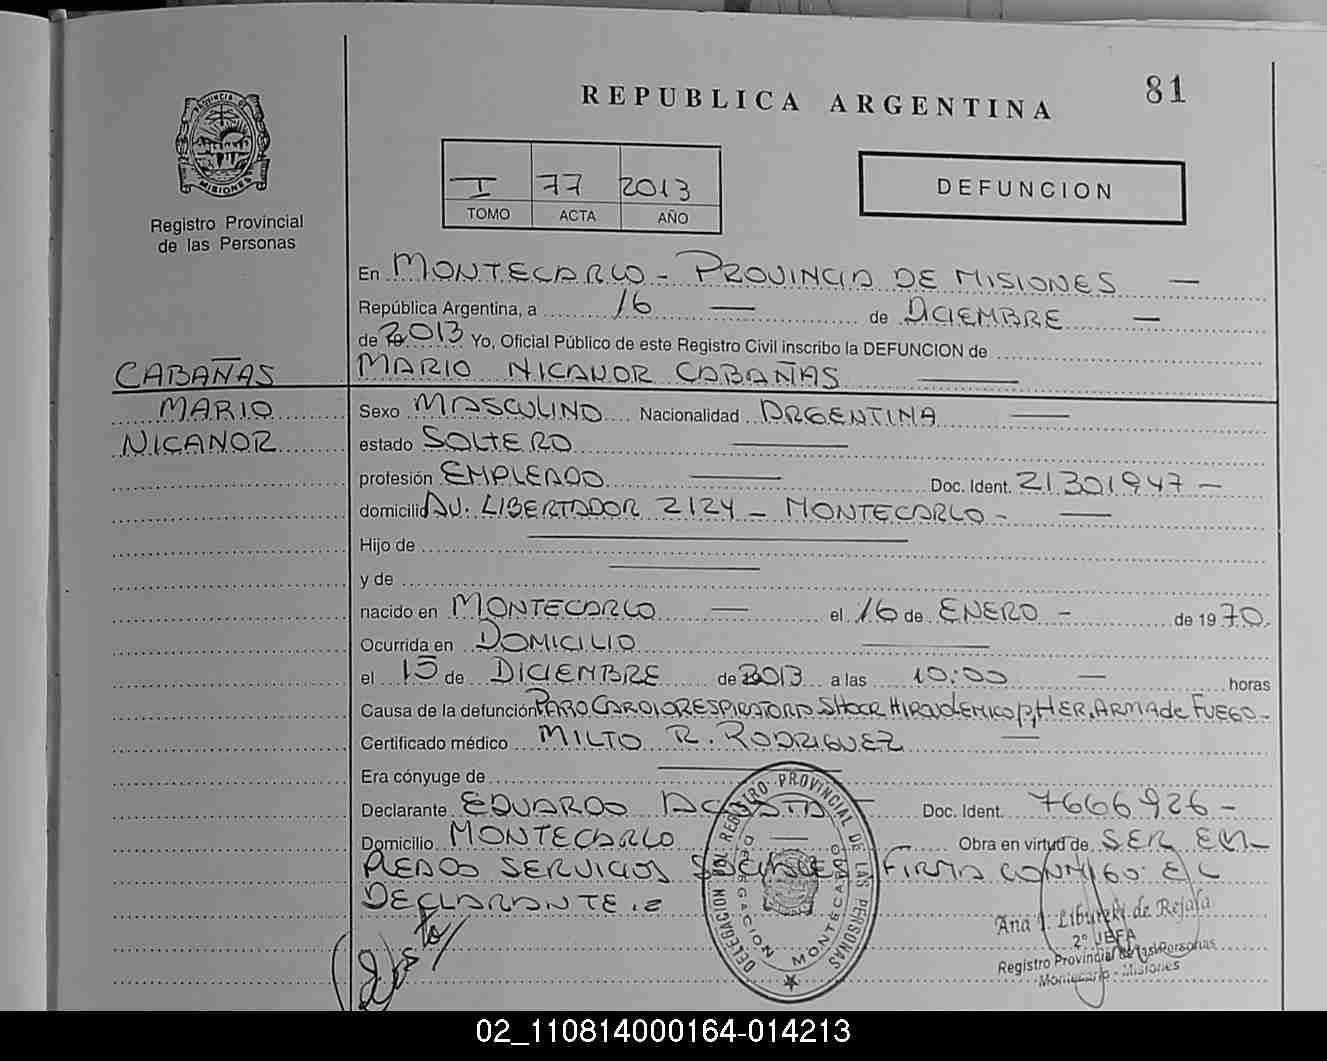 81
REPUBLICA ARGENTINA
PROVINCIA DE MISIONES
Registro Provincial
de las Personas
I 77 2013
TOMO ACTA AÑO
DEFUNCION
En MONTECARLO - PROVINCIA DE MISIONES —
República Argentina, a 16 — de DICIEMBRE —
de 2013 Yo, Oficial Público de este Registro Civil inscribo la DEFUNCION de
CABAÑAS
MARIO
NICANOR
MARIO NICANOR CABAÑAS —
Sexo MASCULINO Nacionalidad ARGENTINA —
estado SOLTERO —
profesión EMPLEADO — Doc. Ident. 21301947 -
domicilio AV. LIBERTADOR 2124 - MONTECARLO - —
Hijo de —
y de —
nacido en MONTECARLO — el 16 de ENERO - de 1970.
Ocurrida en DOMICILIO —
el 15 de DICIEMBRE de 2013 a las 10:00 — horas
Causa de la defunción PARO CARDIORESPIRATORIO SHOCK P/ HER. ARMA de FUEGO -
Certificado médico MILTO R. RODRIGUEZ —
Era cónyuge de —
Declarante EDUARDO ACOSTA - Doc. Ident. 7666926 -
Domicilio MONTECARLO — Obra en virtud de SER EM-
PLEADO SERVICIOS SOCIALES FIRMA CONMIGO EL
DECLARANTE.=
DELEGACION DEL REGISTRO PROVINCIAL DE LAS PERSONAS
DELEGACION MONTECARLO
Ana de Rejala
2º JEFA
Registro Provincial de las Personas
Montecarlo - Misiones
02_110814000164-014213